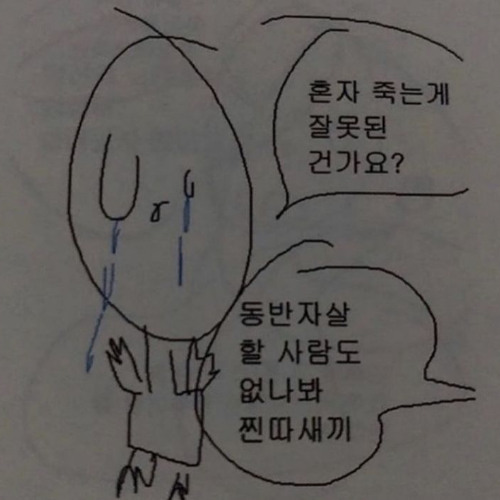 혼자 죽는게
잘못된
건가요?
동반자살
할 사람도
없나봐
찐따새끼